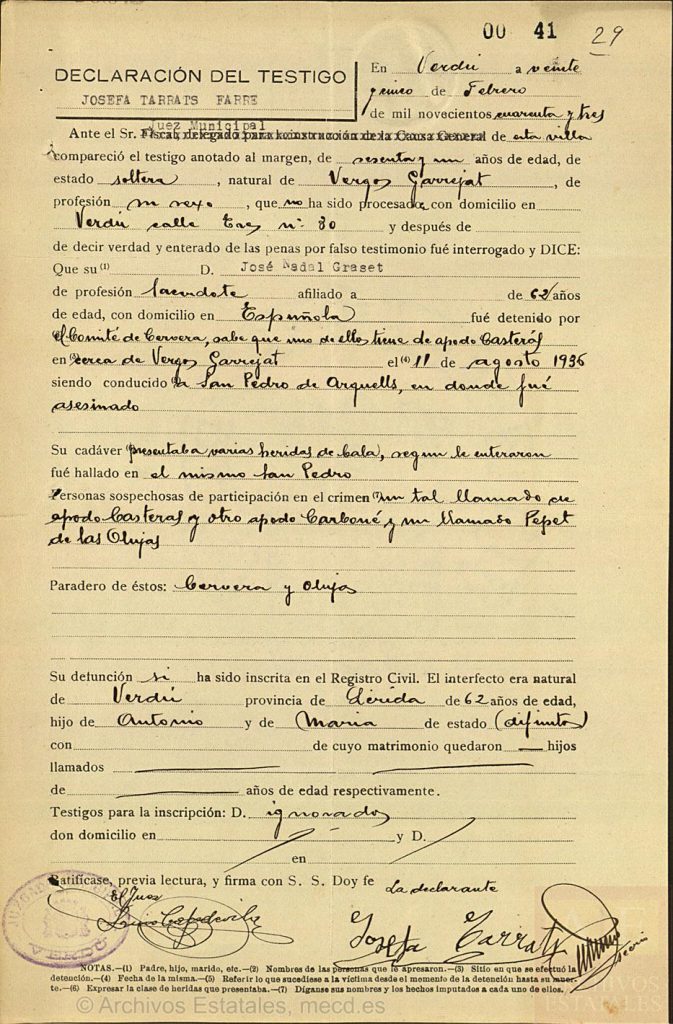 00 41 29
DECLARACIÓN DEL TESTIGO
JOSEFA TARRATS FARRE
En Verdú a veinte
cinco de Febrero
de mil novecientos cuarenta y tres
Juez Municipal
Ante el Sr. Fiscal, delegado para la instrucción de la Causa General de esta villa
compareció el testigo anotado al margen, de sesenta y un años de edad, de
estado soltera, natural de Vergos Garrejat, de
profesión su sexo, que no ha sido procesada con domicilio en
Verdú calle nº 30 y después de
de decir verdad y enterado de las penas por falso testimonio fué interrogado y DICE:
Que su (1) D. José Nadal Graset
de profesión Sacerdote afiliado a de 62 años
de edad, con domicilio en Española fué detenido por
el Comité de Cervera, sabe que uno de ellos tiene de apodo Casterás
en cerca de Vergos Garrejat el (4) 11 de agosto 1936
siendo conducido a San Pedro de Arquells, en donde fué
asesinado
Su cadáver presentaba varias heridas de bala, segun le enteraron
fué hallado en el mismo San Pedro
Personas sospechosas de participación en el crimen un tal llamado de
apodo Casteras y otro apodo Carboné y un llamado Pepet
de las Olujas
Paradero de éstos: Cervera y Olujas
Su defunción si ha sido inscrita en el Registro Civil. El interfecto era natural
de Verdú provincia de Lérida de 62 años de edad,
hijo de Antonio y de Maria de estado (difuntos)
con de cuyo matrimonio quedaron — hijos
llamados
de años de edad respectivamente.
Testigos para la inscripción: D. ignorados
don domicilio en y D.
en
Ratifícase, previa lectura, y firma con S. S. Doy fe
El Juez
La declarante
Josefa Tarrats
NOTAS.—(1) Padre, hijo, marido, etc.—(2) Nombres de las personas que le apresaron.—(3) Sitio en que se efectuó la
detención.—(4) Fecha de la misma.—(5) Referir lo que sucediese a la víctima desde el momento de la detención hasta su muer-
te.—(6) Expresar la clase de heridas que presentaba.—(7) Díganse sus nombres y los hechos imputados a cada uno de ellos.
© Archivos Estatales, mecd.es